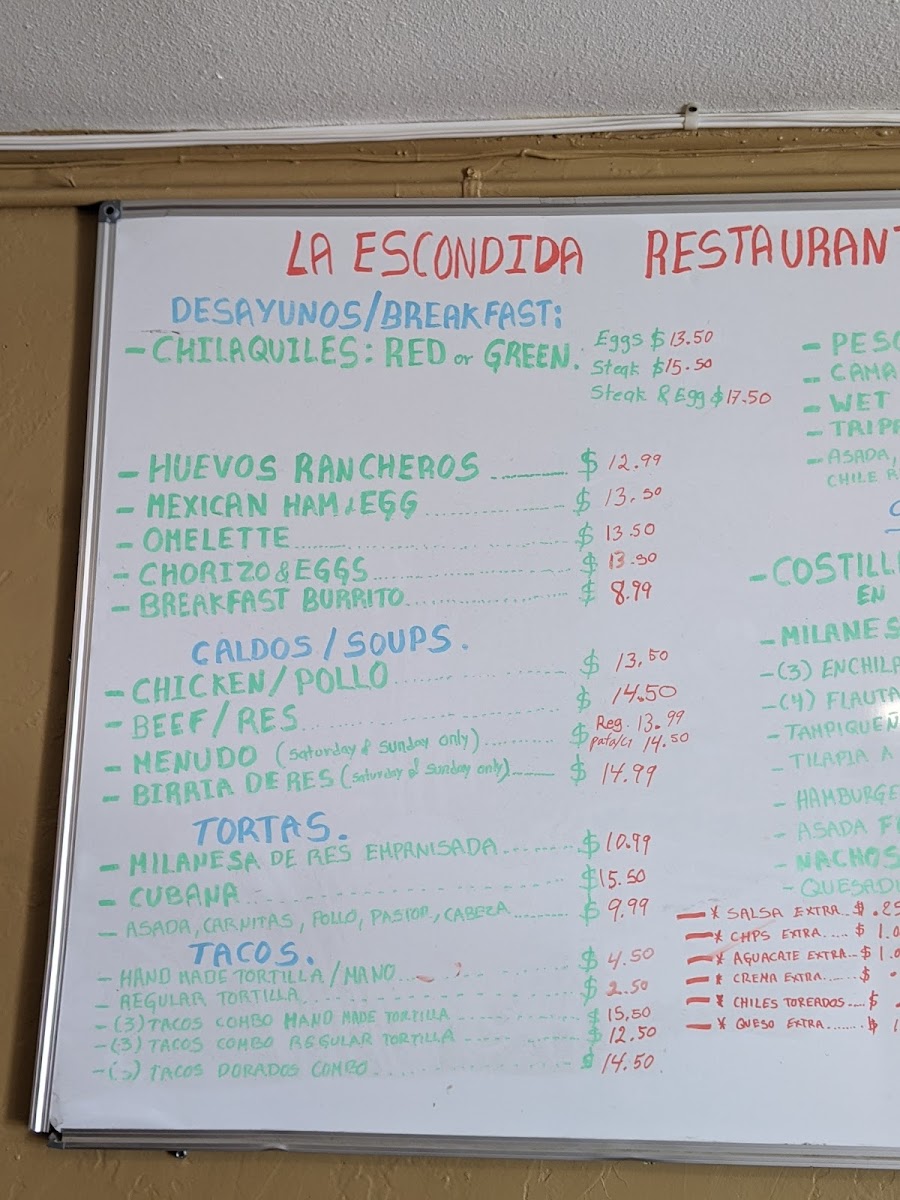 LA ESCONDIDA RESTAURANT
DESAYUNOS/BREAKFAST:
- CHILAQUILES: RED or GREEN. Eggs $13.50
Steak $15.50
Steak & Egg $17.50
- HUEVOS RANCHEROS ........ $ 12.99
- MEXICAN HAM & EGG ........ $ 13.50
- OMELETTE ........ $ 13.50
- CHORIZO & EGGS ........ $ 13.50
- BREAKFAST BURRITO ........ $ 8.99
CALDOS / SOUPS.
- CHICKEN / POLLO ........ $ 13.50
- BEEF / RES ........ $ 14.50
- MENUDO (Saturday & Sunday only) ........ $ Reg. 13.99
14.50
- BIRRIA DE RES (Saturday & Sunday only) ........ $ 14.99
TORTAS.
- MILANESA DE RES EMPANISADA ........ $10.99
- CUBANA ........ $15.50
- ASADA, CARNITAS, POLLO, PASTOR, CABEZA ........ $ 9.99
TACOS.
- HAND MADE TORTILLA / MANO ........ $ 4.50
- REGULAR TORTILLA ........ $ 2.50
- (3) TACOS COMBO HAND MADE TORTILLA ........ $ 15.50
- (3) TACOS COMBO REGULAR TORTILLA ........ $ 12.50
- TACOS DORADOS COMBO ........ $ 14.50
- PESC
- CAMA
- WET
- TRIP
- ASADA,
CHILE R
- COSTILL
EN
- MILANES
- (3) ENCHILA
- (4) FLAUTA
- TAMPIQUEÑ
- TILAPIA A
- HAMBURGE
- ASADA F
- NACHOS
- QUESADI
* SALSA EXTRA.. $ .25
* CHPS EXTRA..... $ 1.0
* AGUACATE EXTRA-- $ 1.0
* CREMA EXTRA....... $
* CHILES TOREADOS.... $
* QUESO EXTRA........ $ 1